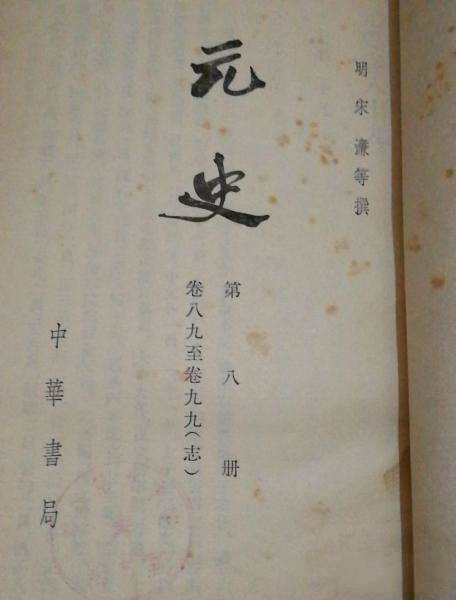 明 宋 濂等撰
元史
第八册
卷八九至卷九九(志)
中華書局